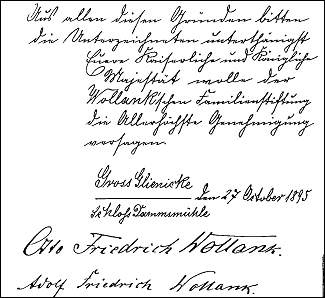 Aus allen diesen Gründen bitten
die Unterzeichneten unterthänigst
Euere Kaiserliche und Königliche
Majestät wolle der
Wollank'schen Familienstiftung
die Allerhöchste Genehmigung
versagen
Gross Glienicke
den 27 October 1895
Schloss Dammsmühle
Otto Friedrich Wollank.
Adolf Friedrich Wollank.